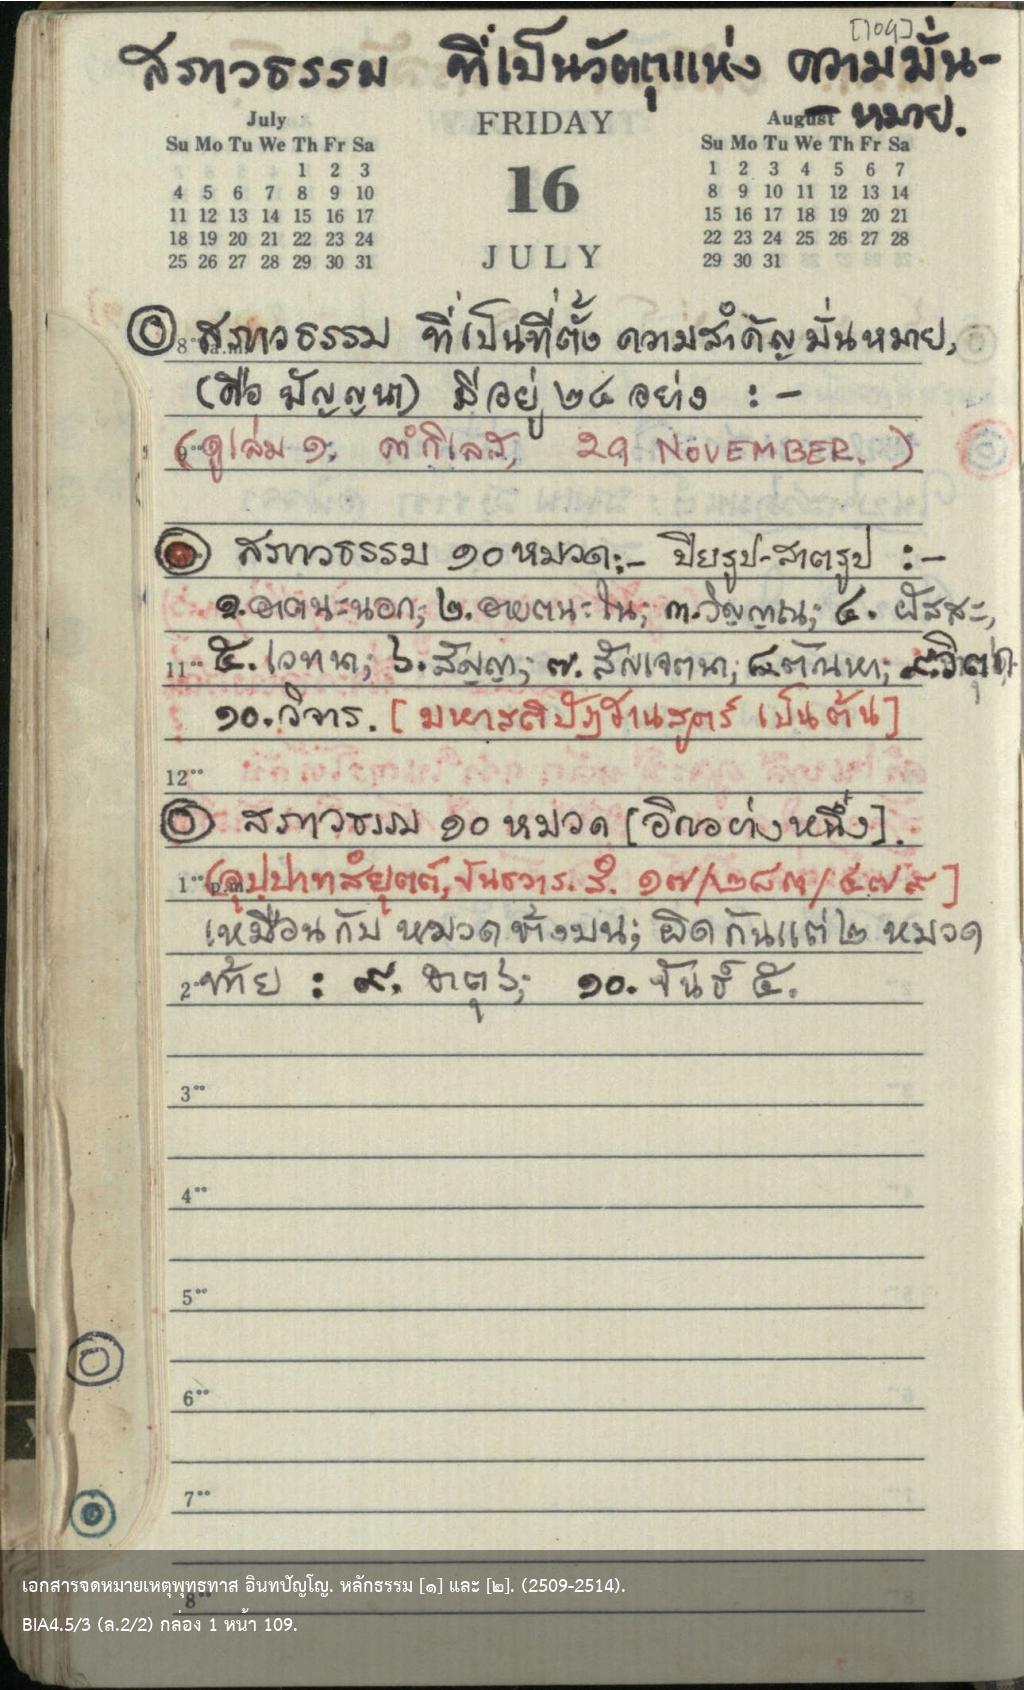 [109]
สภาวธรรม ที่เป็นวัตถุแห่ง ความมั่น-
หมาย.
July
Su Mo Tu We Th Fr Sa
1 2 3
4 5 6 7 8 9 10
11 12 13 14 15 16 17
18 19 20 21 22 23 24
25 26 27 28 29 30 31
FRIDAY
16
JULY
August
Su Mo Tu We Th Fr Sa
1 2 3 4 5 6 7
8 9 10 11 12 13 14
15 16 17 18 19 20 21
22 23 24 25 26 27 28
29 30 31
สภาวธรรม ที่เป็นที่ตั้ง ความสำคัญ มั่นหมาย,
(คือ มัญญนา) มีอยู่ ๒๔ อย่าง :-
(ดูเล่ม ๑. คำกิเลส, 29 NOVEMBER. )
สภาวธรรม ๑๐ หมวด:- ปิยรูป-สาตรูป :-
๑.อาตนะนอก; ๒.อายตนะใน; ๓.วิญญาณ; ๔. ผัสสะ,
11°° ๕. เวทนา; ๖. สัญญา; ๗. สัญเจตนา; ๘.ตัณหา; ๙.วิตก;
๑๐. วิจาร. [ มหาสติปัฏฐานสูตร์ เป็นต้น]
12°°
สภาวธรรม ๑๐ หมวด [อีกอย่างหนึ่ง].
1°° p.m. (อุปปาทสํยุตต์, ขันธวาร. สํ. ๑๗/๒๘๓/๔๗๙ ]
เหมือนกับ หมวดข้างบน; ผิดกันแต่ ๒ หมวด
2°° ท้าย : ๙. ธาตุ ๖; ๑๐. ขันธ์ ๕.
3°°
4°°
5°°
6°°
7°°
8°°
เอกสารจดหมายเหตุพุทธทาส อินทปัญโญ. หลักธรรม [๑] และ [๒]. (2509-2514).
BIA4.5/3 (ล.2/2) กล่อง 1 หน้า 109.